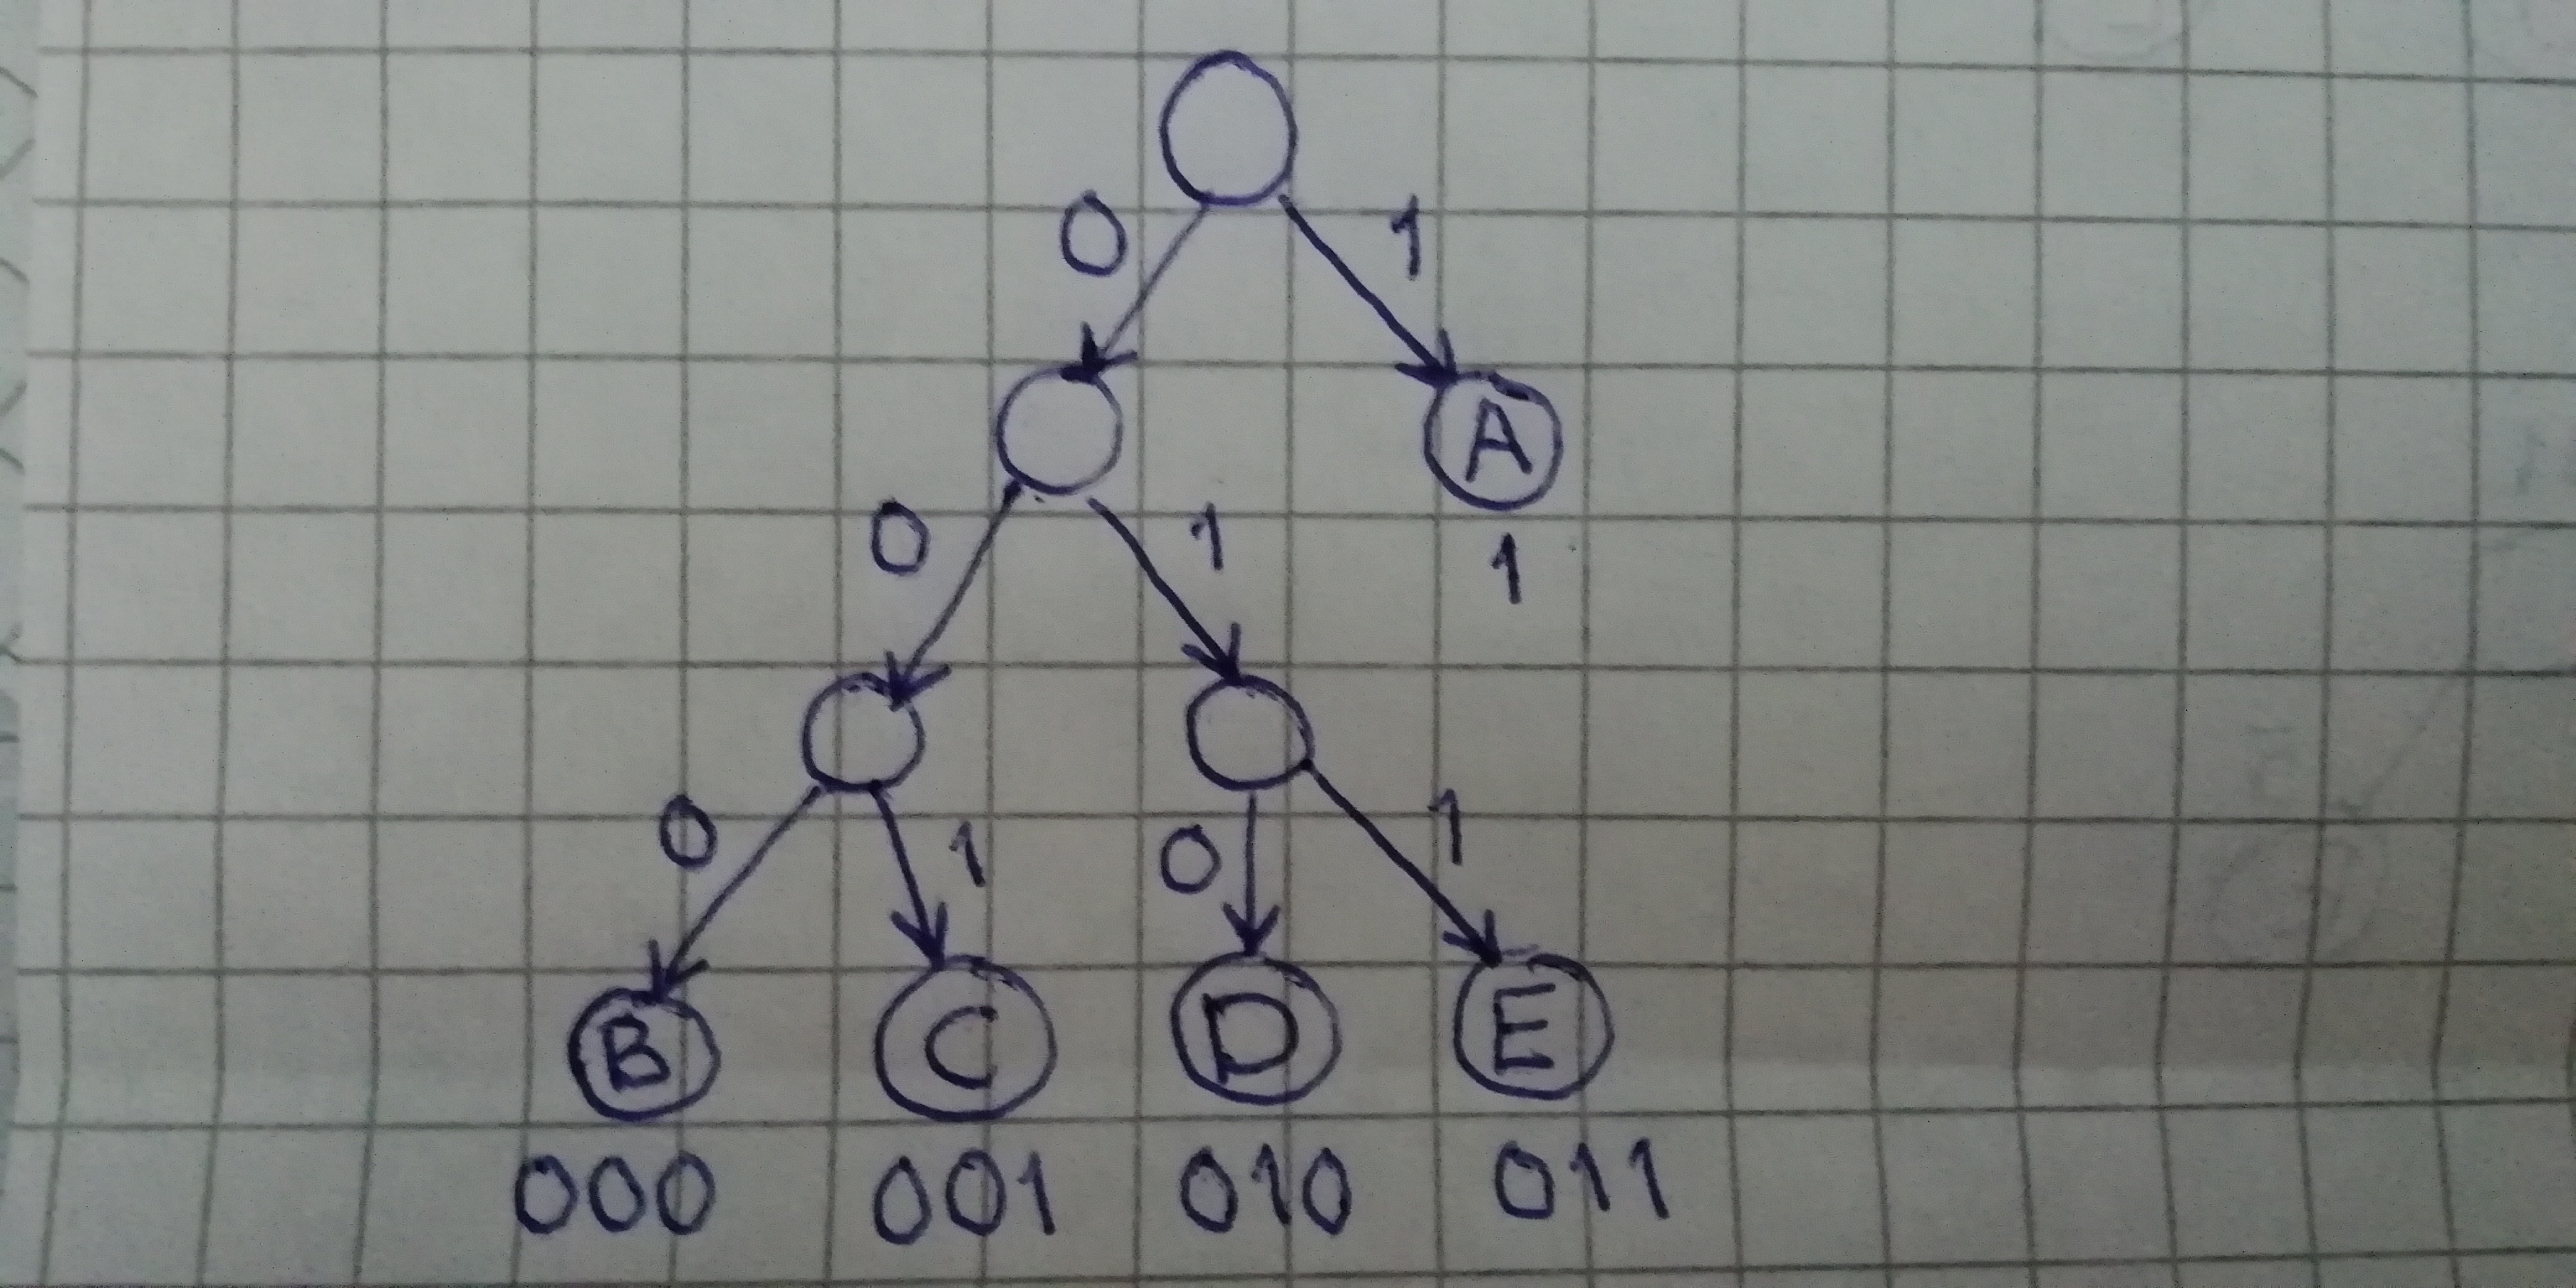 0 1
A
0 1 1
0 1 0 1
B C D E
000 001 010 011